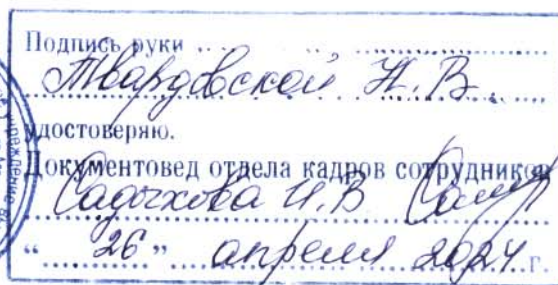 Подпись руки
Твардовской Н.В.
удостоверяю.
Документовед отдела кадров сотрудников
Садыхова И.В.
“ 26 ” апреля 2024 г.